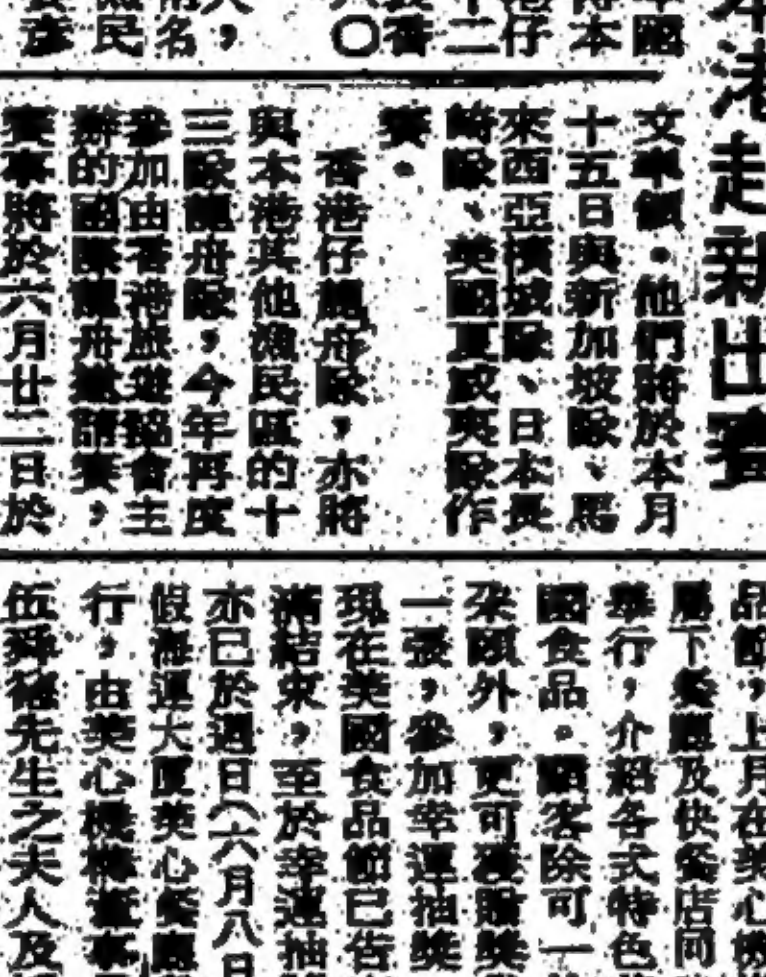 本港走新出賽
本國
本
港仔
十二
賽香
六〇
名
民
彥
文華領。他們將於本月
十五日與新加坡隊、馬
來西亞檳城隊、日本長
崎隊、英國夏威夷隊作
賽。
香港仔龍舟隊，亦將
與本港其他漁民區的十
三隊龍舟隊，今年再度
參加由香港旅遊協會主
辦的國際龍舟邀請賽，
賽事將於六月廿二日於
品節，上月在美心機
屬下餐廳及快餐店同
舉行，介紹各式特色
國食品。顧客除可一
朵頤外，更可獲贈獎
一張，參加幸運抽獎
現在美國食品節已告
滿結束，至於幸運抽
亦已於週日（六月八日
假海運大廈美心餐廳
行，由美心機構董事
伍舜德先生之夫人及